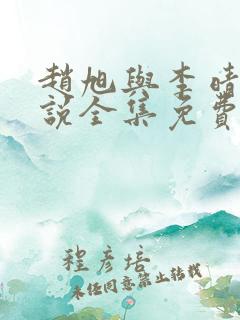 趙旭與李晴
說全集免費
程彥培
未經同意禁止轉載